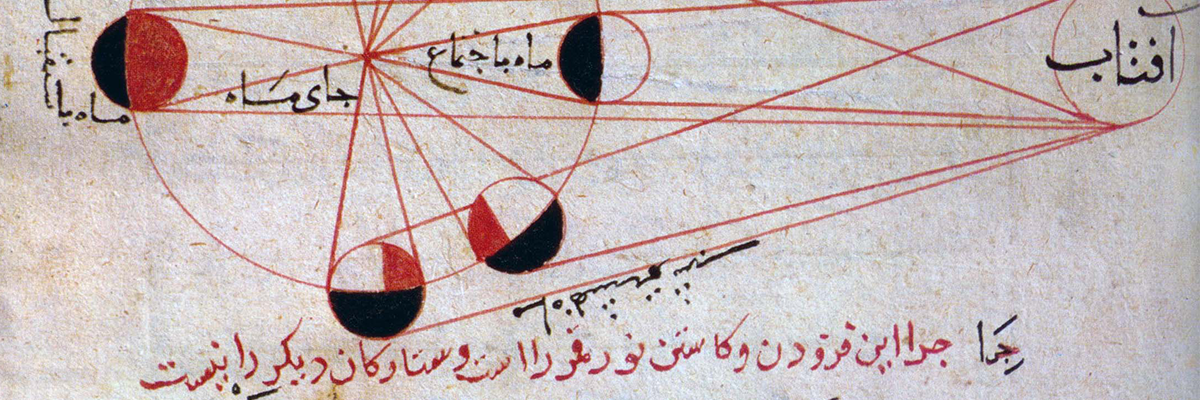 افتاب
ماه باجتماع
جای ماه
ماه با
چرا
چرا این فزودن وکاستن نور قمر را است وستارکان دیکر را نیست